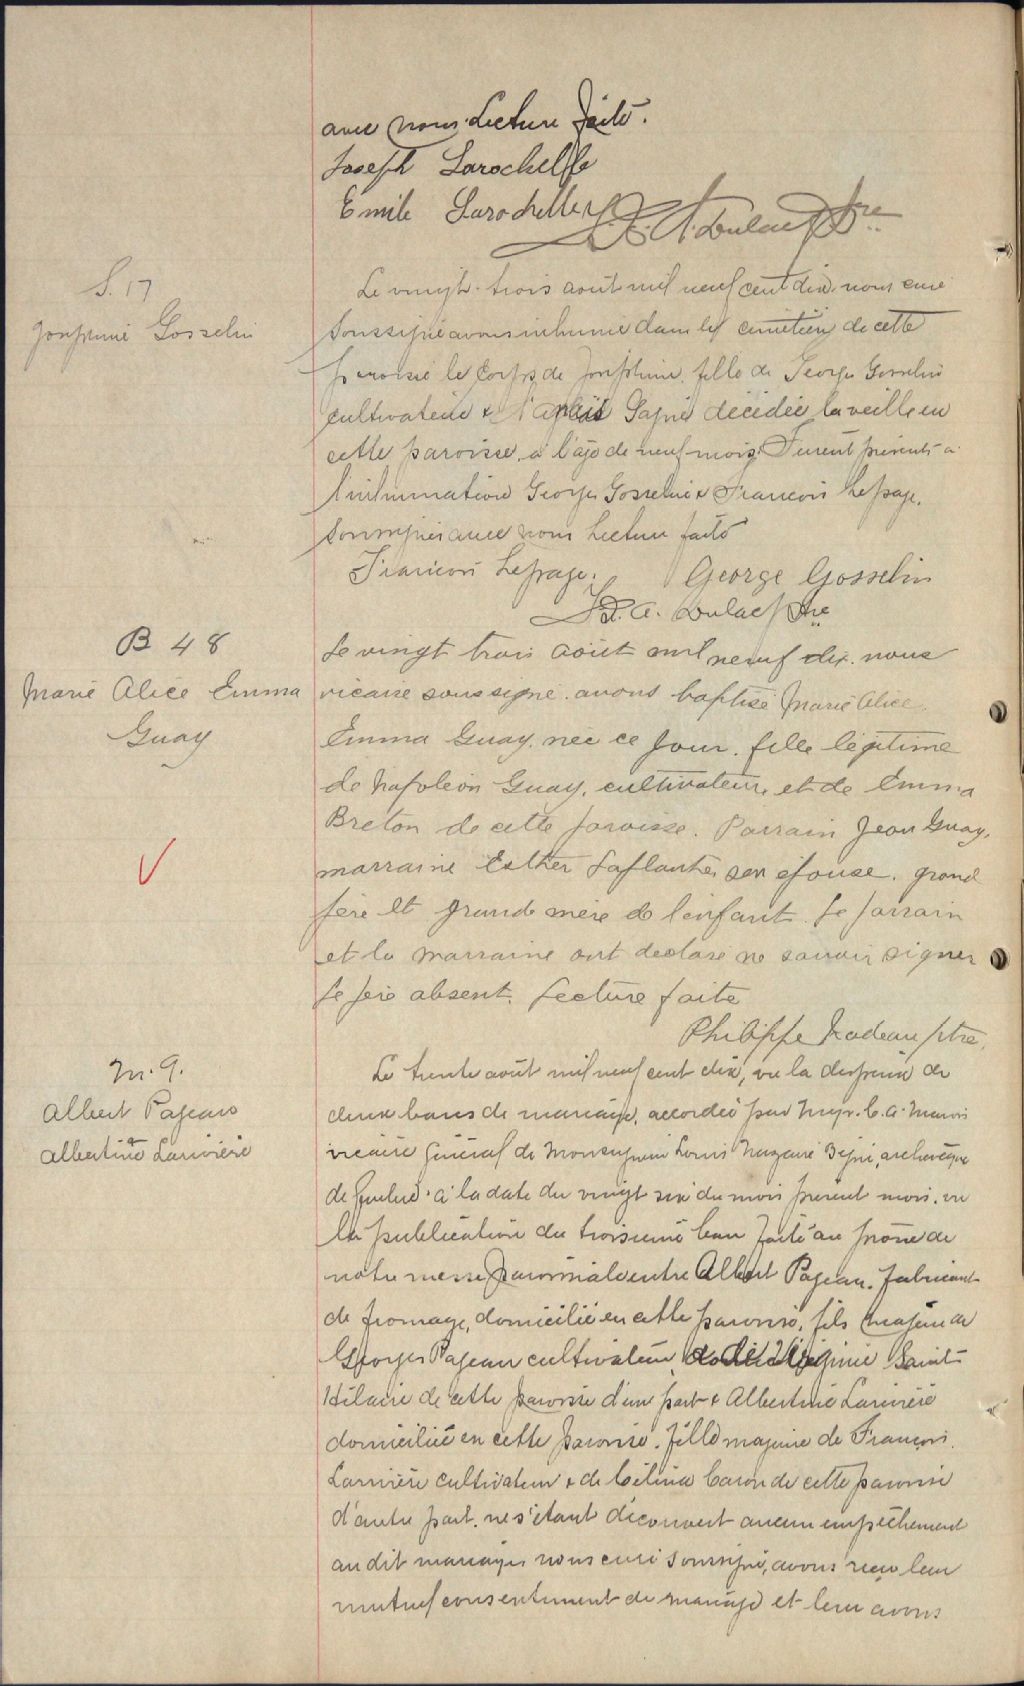 avec nous. Lecture faite.
Joseph Larochelle
Emile Larochelle
A. Dulac Ptre
S. 17
Josephine Gosselin
Le vingt-trois août mil neuf cent dix nous curé
soussigné avons inhumé dans le cimetière de cette
paroisse le corps de Josephine fille de George Gosselin
cultivateur & décédée la veille en
cette paroisse à l'âge de neuf mois. Furent présents à
l'inhumation Georges Gosselin & Francois Lepage.
soussignés avec nous Lecture faite
Francois Lepage. George Gosselin
A. Dulac Ptre
B 48
Marie Alice Emma
Guay
Le vingt trois août mil neuf dix. nous
vicaire soussigné avons baptisé Marie Alice
Emma Guay, née ce jour, fille légitime
de Napoléon Guay, cultivateur, et de Emma
Breton de cette paroisse. Parrain Jean Guay,
marraine Esther Laplante, son épouse, grand
père et grande mère de l'enfant. Le parrain
et la marraine ont declaré ne savoir signer
Le père absent. Lecture faite
Philippe Nadeau ptre.
M. 9.
Albert Pageau
Albertine Larivière
Le trente août mil neuf cent dix, vu la dispense de
deux bans de mariage, accordée par Mgr. C. A. Marois
vicaire Général de Monseigneur Louis Nazaire Bégin, archevêque
de Québec à la date du vingt six du mois présent mois, vu
la publication du troisième ban faite au prône de
notre messe paroissiale entre Albert Pageau, fabricant
de fromage, domicilié en cette paroisse, fils majeur de
Georges Pageau cultivateur & de Virginie Saint-
Hilaire de cette paroisse d'une part & Albertine Larivière
domiciliée en cette paroisse, fille majeure de François
Larivière cultivateur & de Célina Caron de cette paroisse
d'autre part. ne s'étant découvert aucun empêchement
au dit mariage nous curé soussigné, avons reçu leur
mutuel consentement de mariage et leur avons